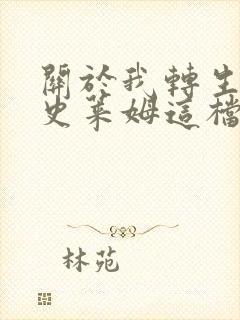 關於我轉生
史萊姆這檔
林苑